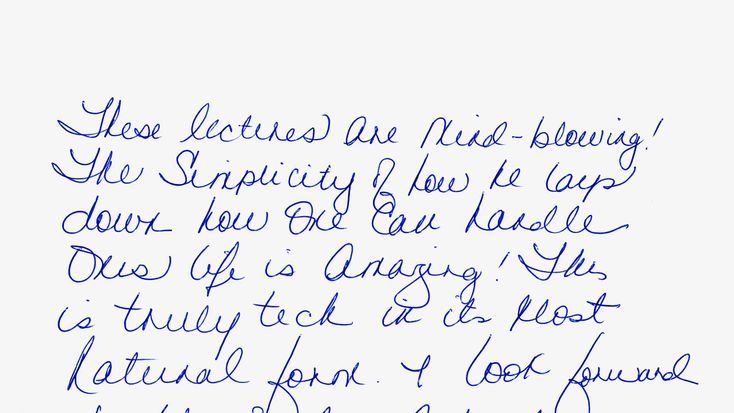 These lectures are mind-blowing!
The Simplicity of how he lays
down how one can handle
Ones life is amazing! This
is truly tech in its most
natural form. I look forward